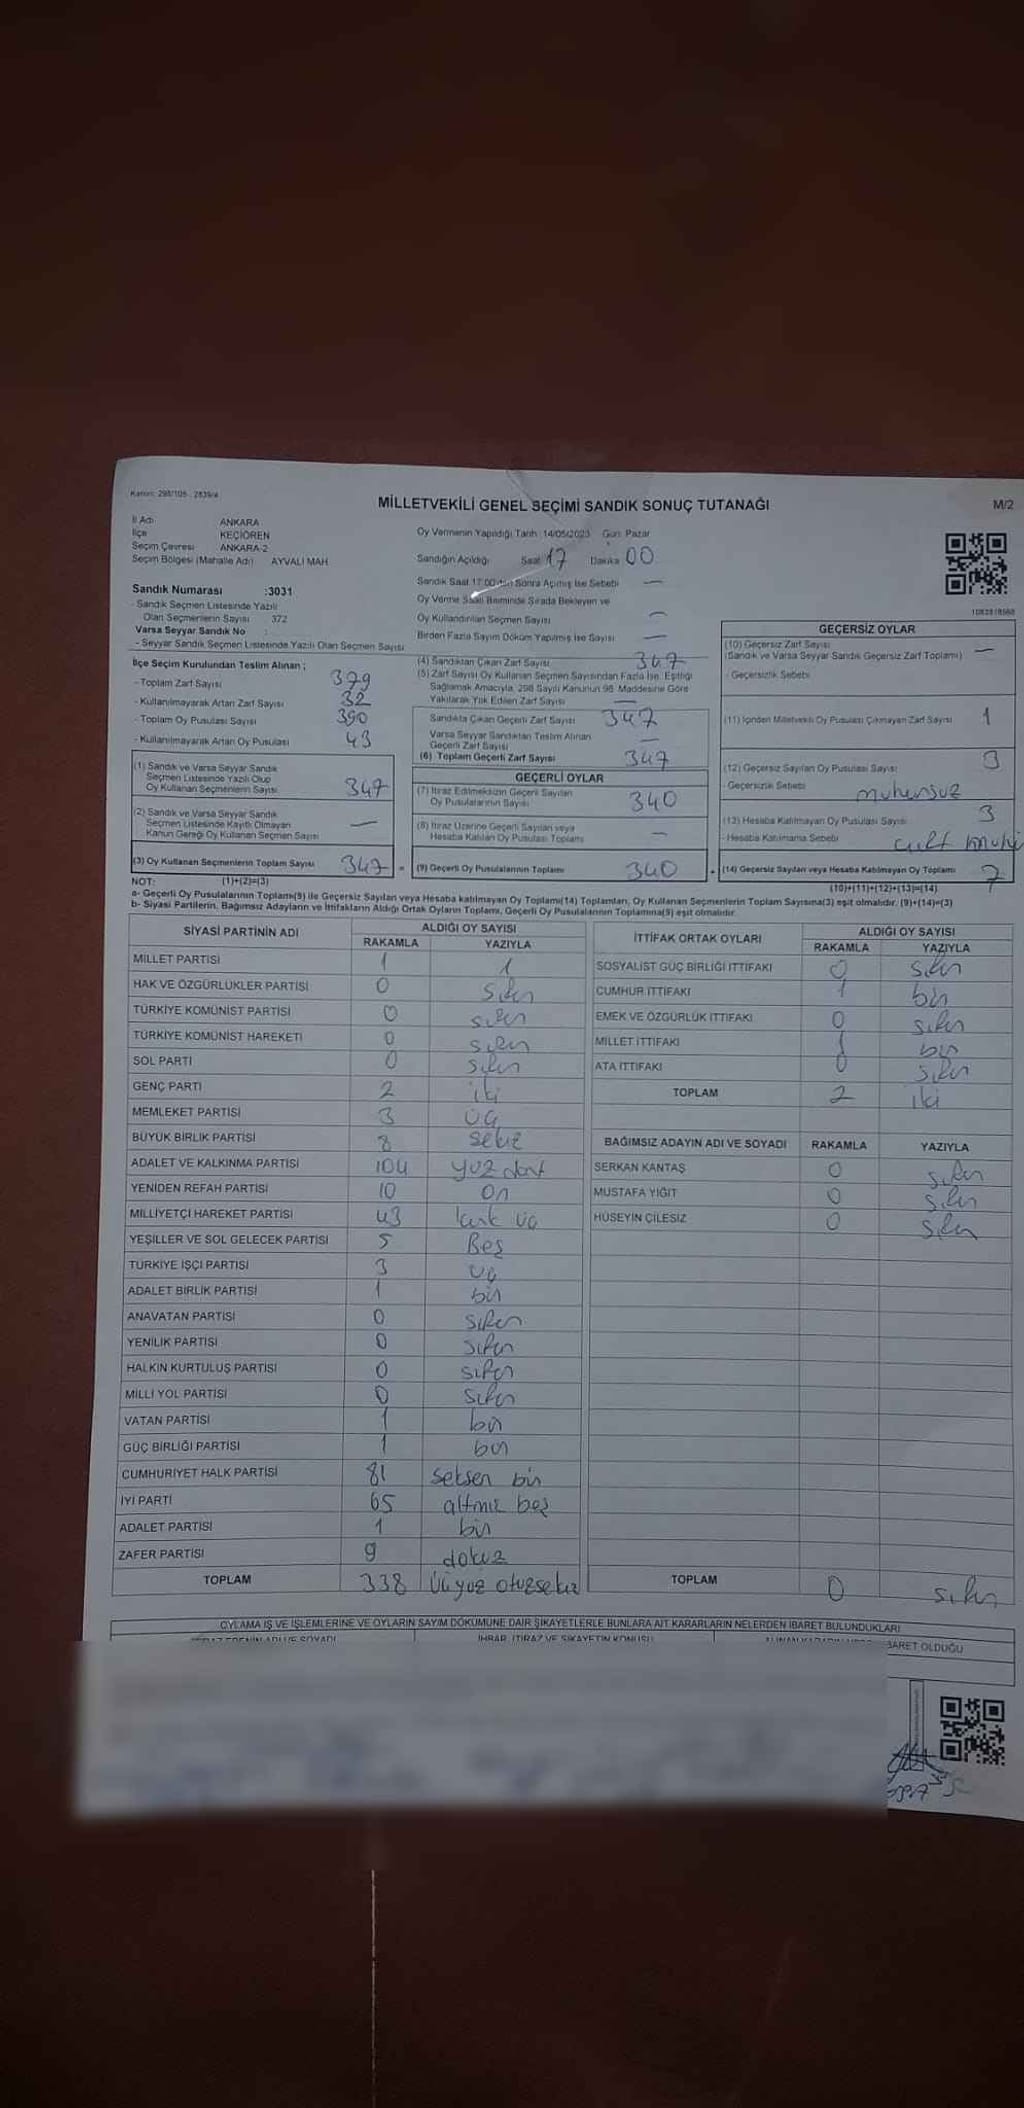 Kanun: 298/105 - 2839/4
MİLLETVEKİLİ GENEL SEÇİMİ SANDIK SONUÇ TUTANAĞI
M/2
İl Adı ANKARA
İlçe KEÇİÖREN
Seçim Çevresi ANKARA-2
Seçim Bölgesi (Mahalle Adı) AYVALI MAH
Sandık Numarası :3031
- Sandık Seçmen Listesinde Yazılı
Olan Seçmenlerin Sayısı 372
Varsa Seyyar Sandık No :
- Seyyar Sandık Seçmen Listesinde Yazılı Olan Seçmen Sayısı
İlçe Seçim Kurulundan Teslim Alınan ;
- Toplam Zarf Sayısı 379
- Kullanılmayarak Artan Zarf Sayısı 32
- Toplam Oy Pusulası Sayısı 390
- Kullanılmayarak Artan Oy Pusulası 43
(1) Sandık ve Varsa Seyyar Sandık
Seçmen Listesinde Yazılı Olup
Oy Kullanan Seçmenlerin Sayısı 347
(2) Sandık ve Varsa Seyyar Sandık
Seçmen Listesinde Kayıtlı Olmayan
Kanun Gereği Oy Kullanan Seçmen Sayısı —
(3) Oy Kullanan Seçmenlerin Toplam Sayısı 347 =
Oy Vermenin Yapıldığı Tarih :14/05/2023 Gün: Pazar
Sandığın Açıldığı Saat 17 Dakika 00
Sandık Saat 17:00'den Sonra Açılmış İse Sebebi —
Oy Verme Saati Bitiminde Sırada Bekleyen ve
Oy Kullandırılan Seçmen Sayısı —
Birden Fazla Sayım Döküm Yapılmış İse Sayısı —
(4) Sandıktan Çıkan Zarf Sayısı 347
(5) Zarf Sayısı Oy Kullanan Seçmen Sayısından Fazla İse, Eşitliği
Sağlamak Amacıyla, 298 Sayılı Kanunun 98. Maddesine Göre
Yakılarak Yok Edilen Zarf Sayısı —
Sandıkta Çıkan Geçerli Zarf Sayısı 347
Varsa Seyyar Sandıktan Teslim Alınan
Geçerli Zarf Sayısı —
(6) Toplam Geçerli Zarf Sayısı 347
GEÇERLİ OYLAR
(7) İtiraz Edilmeksizin Geçerli Sayılan
Oy Pusulalarının Sayısı 340
(8) İtiraz Üzerine Geçerli Sayılan veya
Hesaba Katılan Oy Pusulası Toplamı —
(9) Geçerli Oy Pusulalarının Toplamı 340
1082818568
GEÇERSİZ OYLAR
(10) Geçersiz Zarf Sayısı
(Sandık ve Varsa Seyyar Sandık Geçersiz Zarf Toplamı) —
- Geçersizlik Sebebi
(11) İçinden Milletvekili Oy Pusulası Çıkmayan Zarf Sayısı 1
(12) Geçersiz Sayılan Oy Pusulası Sayısı 3
- Geçersizlik Sebebi mühürsüz
(13) Hesaba Katılmayan Oy Pusulası Sayısı 3
- Hesaba Katılmama Sebebi çift
(14) Geçersiz Sayılan veya Hesaba Katılmayan Oy Toplamı 7
NOT: (1)+(2)=(3)
(10)+(11)+(12)+(13)=(14)
a- Geçerli Oy Pusulalarının Toplamı(9) ile Geçersiz Sayılan veya Hesaba katılmayan Oy Toplamı(14) Toplamları, Oy Kullanan Seçmenlerin Toplam Sayısına(3) eşit olmalıdır. (9)+(14)=(3)
b- Siyasi Partilerin, Bağımsız Adayların ve İttifakların Aldığı Ortak Oyların Toplamı, Geçerli Oy Pusulalarının Toplamına(9) eşit olmalıdır.
SİYASİ PARTİNİN ADI ALDIĞI OY SAYISI
RAKAMLA YAZIYLA
MİLLET PARTİSİ 1 1
HAK VE ÖZGÜRLÜKLER PARTİSİ 0 sıfır
TÜRKİYE KOMÜNİST PARTİSİ 0 sıfır
TÜRKİYE KOMÜNİST HAREKETİ 0 sıfır
SOL PARTİ 0 sıfır
GENÇ PARTİ 2 iki
MEMLEKET PARTİSİ 3 üç
BÜYÜK BİRLİK PARTİSİ 8 sekiz
ADALET VE KALKINMA PARTİSİ 104 yüz dört
YENİDEN REFAH PARTİSİ 10 on
MİLLİYETÇİ HAREKET PARTİSİ 43 kırk üç
YEŞİLLER VE SOL GELECEK PARTİSİ 5 Beş
TÜRKİYE İŞÇİ PARTİSİ 3 üç
ADALET BİRLİK PARTİSİ 1 bir
ANAVATAN PARTİSİ 0 sıfır
YENİLİK PARTİSİ 0 sıfır
HALKIN KURTULUŞ PARTİSİ 0 sıfır
MİLLİ YOL PARTİSİ 0 sıfır
VATAN PARTİSİ 1 bir
GÜÇ BİRLİĞİ PARTİSİ 1 bir
CUMHURİYET HALK PARTİSİ 81 seksen bir
İYİ PARTİ 65 altmış beş
ADALET PARTİSİ 1 bir
ZAFER PARTİSİ 9 dokuz
TOPLAM 338 üçyüz otuzsekiz
İTTİFAK ORTAK OYLARI ALDIĞI OY SAYISI
RAKAMLA YAZIYLA
SOSYALİST GÜÇ BİRLİĞİ İTTİFAKI 0 sıfır
CUMHUR İTTİFAKI 1 bir
EMEK VE ÖZGÜRLÜK İTTİFAKI 0 sıfır
MİLLET İTTİFAKI 1 bir
ATA İTTİFAKI 0 sıfır
TOPLAM 2 iki
BAĞIMSIZ ADAYIN ADI VE SOYADI RAKAMLA YAZIYLA
SERKAN KANTAŞ 0 sıfır
MUSTAFA YİĞİT 0 sıfır
HÜSEYİN ÇİLESİZ 0 sıfır
TOPLAM 0 sıfır
OYLAMA İŞ VE İŞLEMLERİNE VE OYLARIN SAYIM DÖKÜMÜNE DAİR ŞİKAYETLERLE BUNLARA AİT KARARLARIN NELERDEN İBARET BULUNDUKLARI
İTİRAZ EDENİN ADI VE SOYADI İHBAR, İTİRAZ VE ŞİKAYETİN KONUSU İBARET OLDUĞU